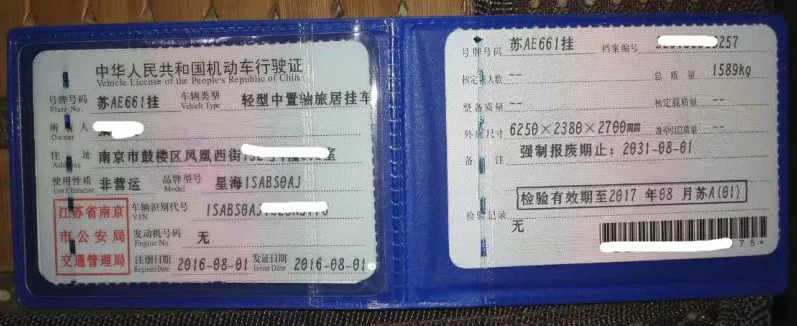 中华人民共和国机动车行驶证
Vehicle License of the People's Republic of China
号牌号码 苏AE661挂 车辆类型 轻型中置轴旅居挂车
Plate No. Vehicle Type
所 人
Owner
住 址 南京市鼓楼区凤凰西街 室
Address
使用性质 非营运 品牌型号 星海1SABS0AJ
Use Character Model
江苏省南京
市公安局
交通管理局
车辆识别代号
VIN
发动机号码 无
Engine No.
注册日期 2016-08-01 发证日期 2016-08-01
Register Date Issue Date
号牌号码 苏AE661挂 档案编号 257
核定人数 -- 总质量 1589kg
整备质量 -- 核定载质量 --
外廓尺寸 6250×2380×2700mm 准牵引总质量 --
备 注 强制报废期止：2031-08-01
检验有效期至2017 年08 月苏A(01)
检验记录
无